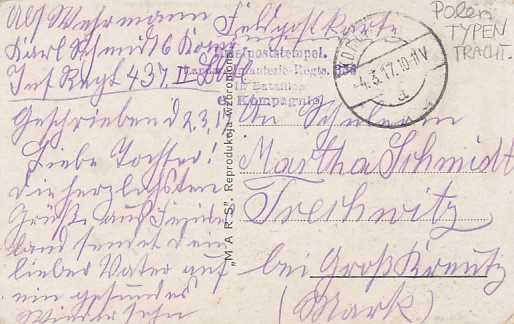 Abs Wehrmann
Karl Schmidt 6 Komp
Inf Regt 437, II Batl
Geschrieben d 2.3.17
Liebe Tochter!
die herzlichsten
Grüße aus Feindes
land sendet dein
lieber Vater auf
ein gesundes
Wiedersehn
Feldpostkarte
Briefpoststempel.
Infanterie-Regts.
II Bataillon
6. Kompagnie
4.3.17.10-11V
a
Polen
TYPEN
TRACHT.
„MARS". Reprodukcja wzbroniona
An Schülerin
Martha Schmidt
Trechwitz
bei Groß Kreutz
(Mark)